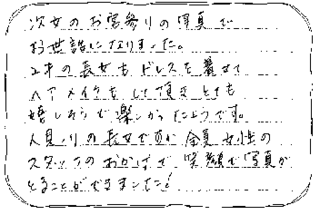 次女のお宮参りの写真で
お世話になりました。
2才の長女もドレスを着せて
ヘアメイクもして頂きとても
嬉しそうで楽しかったようです。
人見しりの長女ですが全員女性の
スタッフのおかげで笑顔で写真が
とることができました!